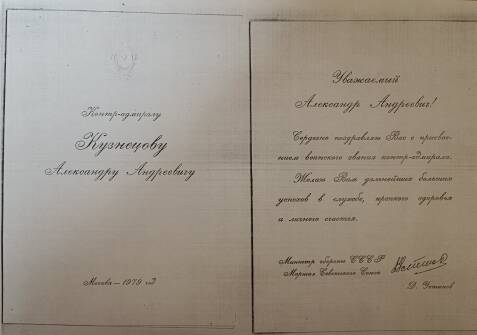 Контр-адмиралу
Кузнецову
Александру Андреевичу
Москва — 1979 год
Уважаемый
Александр Андреевич!
Сердечно поздравляю Вас с присвое-
нием воинского звания контр-адмирала.
Желаю Вам дальнейших больших
успехов в службе, крепкого здоровья
и личного счастья.
Министр обороны СССР
Маршал Советского Союза
Д. Устинов